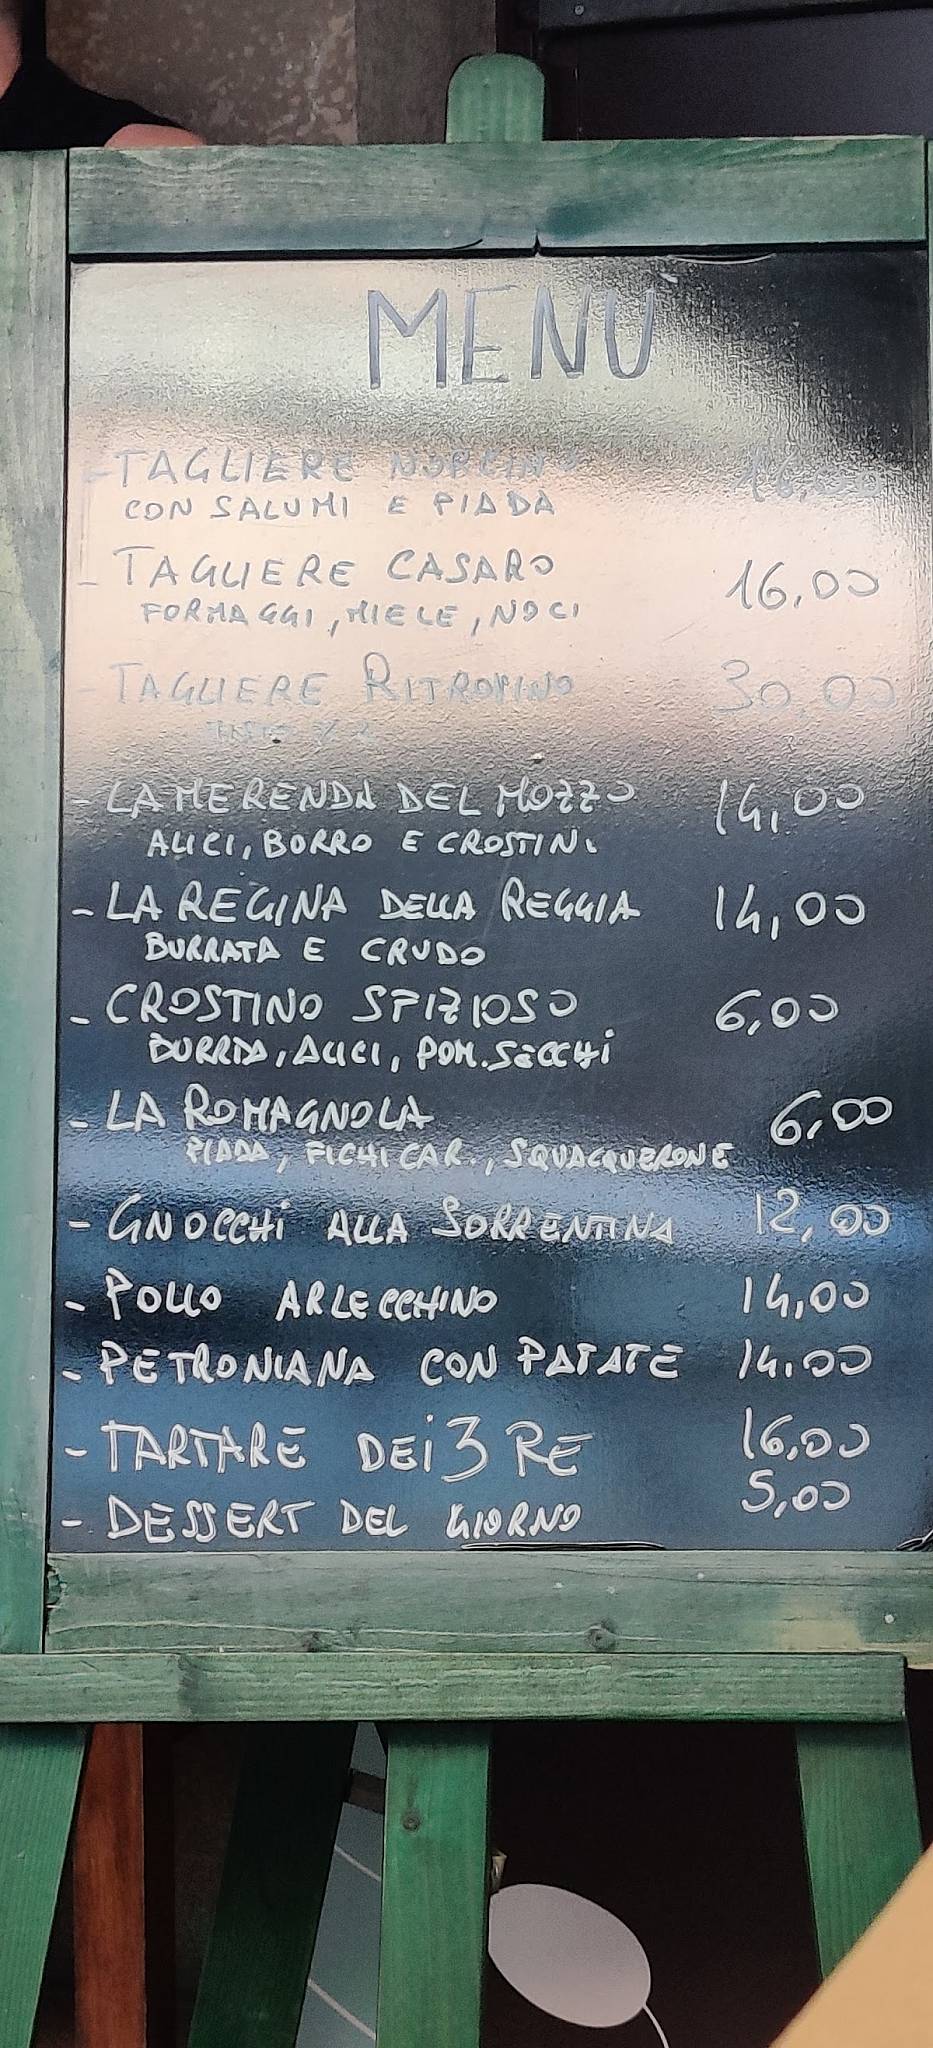 MENÙ
- TAGLIERE NORCINO 16,00
CON SALUMI E PIADA
- TAGLIERE CASARO 16,00
FORMAGGI, MIELE, NOCI
- TAGLIERE RITROVINO 30,00
X 2
- LA MERENDA DEL MOZZO 14,00
ALICI, BURRO E CROSTINI
- LA REGINA DELLA REGGIA 14,00
BURRATA E CRUDO
- CROSTINO SFIZIOSO 6,00
ALICI, POM. SECCHI
- LA ROMAGNOLA 6,00
PIADA, FICHI CAR., SQUACQUERONE
- GNOCCHI ALLA SORRENTINA 12,00
- POLLO ARLECCHINO 14,00
- PETRONIANA CON PATATE 14,00
- TARTARE DEI 3 RE 16,00
- DESSERT DEL GIORNO 5,00